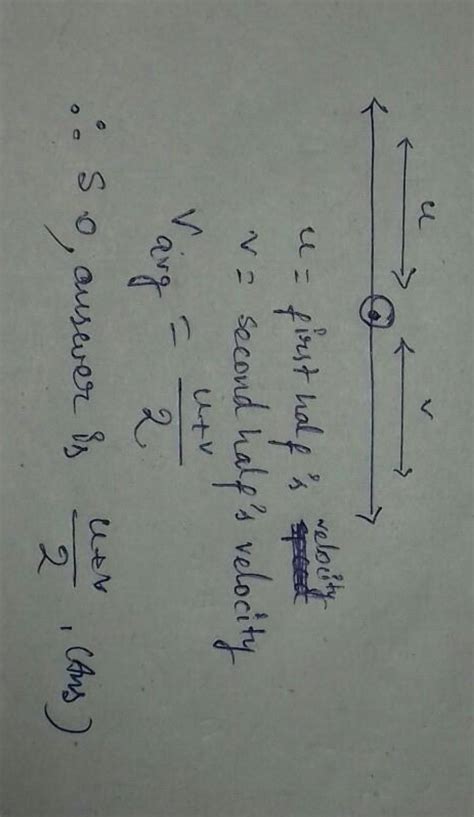 u v
u = first half's velocity
v = second half's velocity
V avg = u+v / 2
∴ So, answer is u+v / 2 , (Ans)